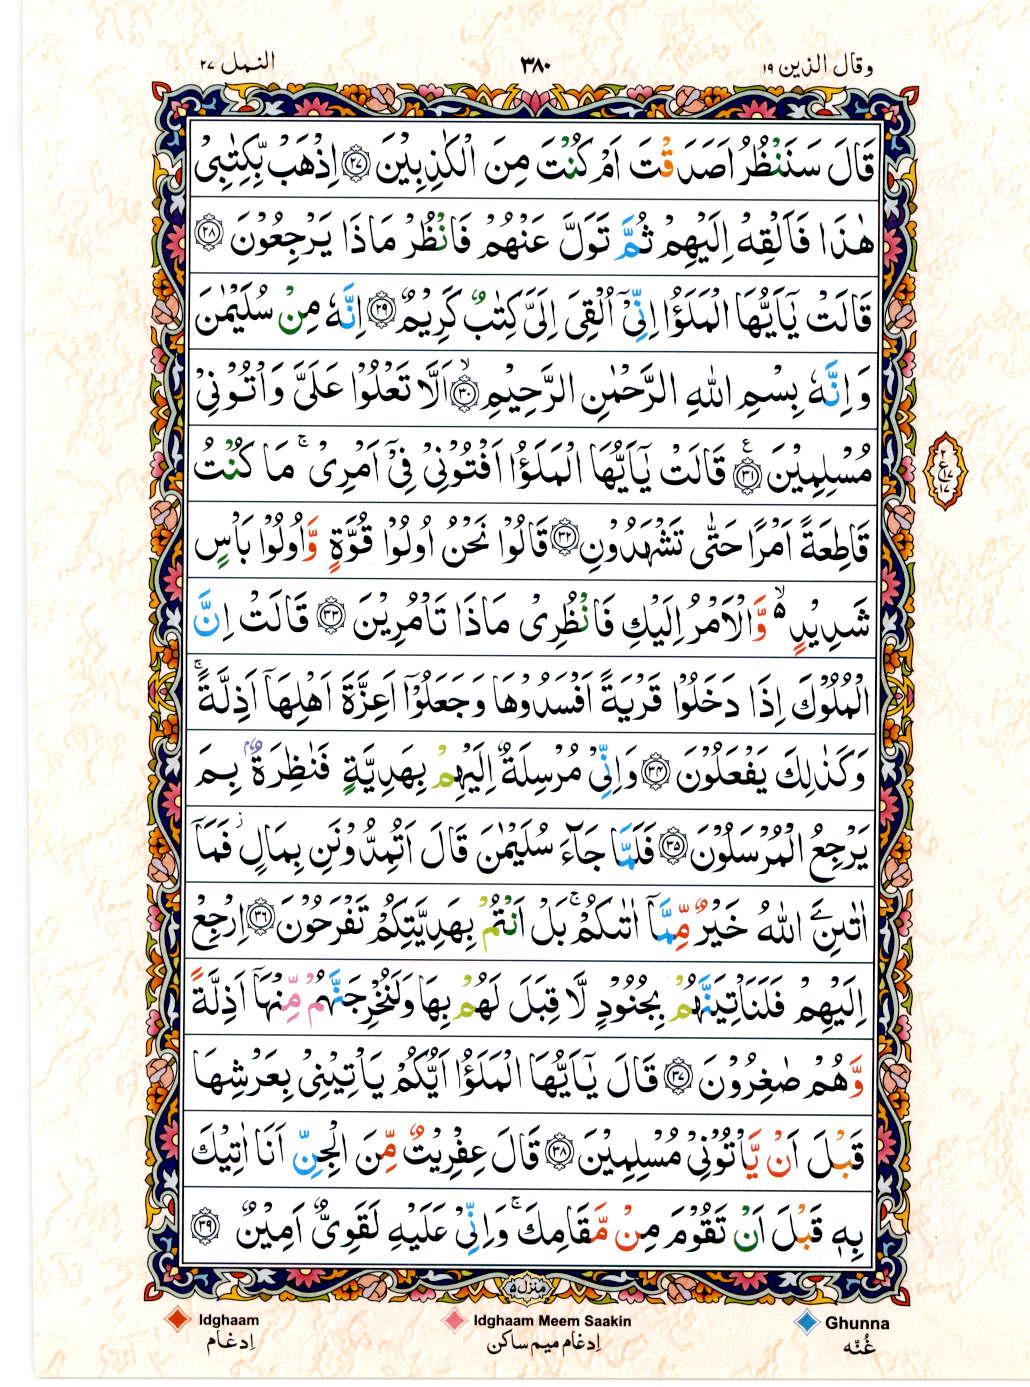 وقال الذين ١٩
٣٨٠
النمل ٢٧
قَالَ سَنَنْظُرُ اَصَدَقْتَ اَمْ كُنْتَ مِنَ الْكٰذِبِيْنَ ﴿٢٧﴾ اِذْهَبْ بِّكِتٰبِيْ
هٰذَا فَاَلْقِهْ اِلَيْهِمْ ثُمَّ تَوَلَّ عَنْهُمْ فَانْظُرْ مَاذَا يَرْجِعُوْنَ ﴿٢٨﴾
قَالَتْ يٰٓاَيُّهَا الْمَلَؤُا اِنِّيْٓ اُلْقِيَ اِلَيَّ كِتٰبٌ كَرِيْمٌ ﴿٢٩﴾ اِنَّهٗ مِنْ سُلَيْمٰنَ
وَاِنَّهٗ بِسْمِ اللّٰهِ الرَّحْمٰنِ الرَّحِيْمِ ﴿٣٠﴾ۙ اَلَّا تَعْلُوْا عَلَيَّ وَاْتُوْنِيْ
مُسْلِمِيْنَ ﴿٣١﴾ع قَالَتْ يٰٓاَيُّهَا الْمَلَؤُا اَفْتُوْنِيْ فِيْٓ اَمْرِيْ ۚ مَا كُنْتُ
قَاطِعَةً اَمْرًا حَتّٰى تَشْهَدُوْنِ ﴿٣٢﴾ قَالُوْا نَحْنُ اُولُوْا قُوَّةٍ وَّاُولُوْا بَاْسٍ
شَدِيْدٍ ۙ۬ وَّالْاَمْرُ اِلَيْكِ فَانْظُرِيْ مَاذَا تَاْمُرِيْنَ ﴿٣٣﴾ قَالَتْ اِنَّ
الْمُلُوْكَ اِذَا دَخَلُوْا قَرْيَةً اَفْسَدُوْهَا وَجَعَلُوْٓا اَعِزَّةَ اَهْلِهَآ اَذِلَّةً ۚ
وَكَذٰلِكَ يَفْعَلُوْنَ ﴿٣٤﴾ وَاِنِّيْ مُرْسِلَةٌ اِلَيْهِمْ بِهَدِيَّةٍ فَنٰظِرَةٌۢ بِمَ
يَرْجِعُ الْمُرْسَلُوْنَ ﴿٣٥﴾ فَلَمَّا جَآءَ سُلَيْمٰنَ قَالَ اَتُمِدُّوْنَنِ بِمَالٍ ۡ فَمَآ
اٰتٰىنِۦَ اللّٰهُ خَيْرٌ مِّمَّآ اٰتٰىكُمْ ۚ بَلْ اَنْتُمْ بِهَدِيَّتِكُمْ تَفْرَحُوْنَ ﴿٣٦﴾ اِرْجِعْ
اِلَيْهِمْ فَلَنَاْتِيَنَّهُمْ بِجُنُوْدٍ لَّا قِبَلَ لَهُمْ بِهَا وَلَنُخْرِجَنَّهُمْ مِّنْهَآ اَذِلَّةً
وَّهُمْ صٰغِرُوْنَ ﴿٣٧﴾ قَالَ يٰٓاَيُّهَا الْمَلَؤُا اَيُّكُمْ يَاْتِيْنِيْ بِعَرْشِهَا
قَبْلَ اَنْ يَّاْتُوْنِيْ مُسْلِمِيْنَ ﴿٣٨﴾ قَالَ عِفْرِيْتٌ مِّنَ الْجِنِّ اَنَا اٰتِيْكَ
بِهٖ قَبْلَ اَنْ تَقُوْمَ مِنْ مَّقَامِكَ ۚ وَاِنِّيْ عَلَيْهِ لَقَوِيٌّ اَمِيْنٌ ﴿٣٩﴾
٢
ع١٧
١٧
منزل ۵
Idghaam
اِدغام
Idghaam Meem Saakin
اِدغام ميم ساكن
Ghunna
غُنّه